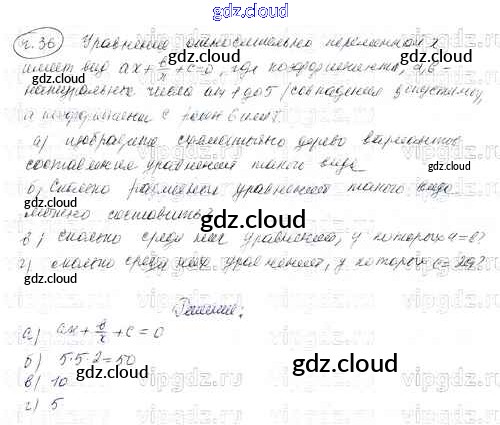 gdz.cloud
ч. 36 Уравнение относительно переменной x
имеет вид ax + b/x + c = 0, где коэффициенты a, b -
натуральные числа от 1 до 5 (совпадения допустимы),
а коэффициент c
а) изобразите схематично дерево вариантов
составления уравнений такого вида
б) Сколько различных уравнений такого вида
можно составить?
в) сколько среди них уравнений, у которых a = b?
г) сколько среди них уравнений, у которых
Решение:
а) ax + b/x + c = 0
б) 5·5·2=50
в) 10
г) 5
gdz.cloud
gdz.cloud
gdz.cloud
gdz.cloud
gdz.cloud
gdz.cloud
gdz.cloud
gdz.cloud
vipgdz.ru